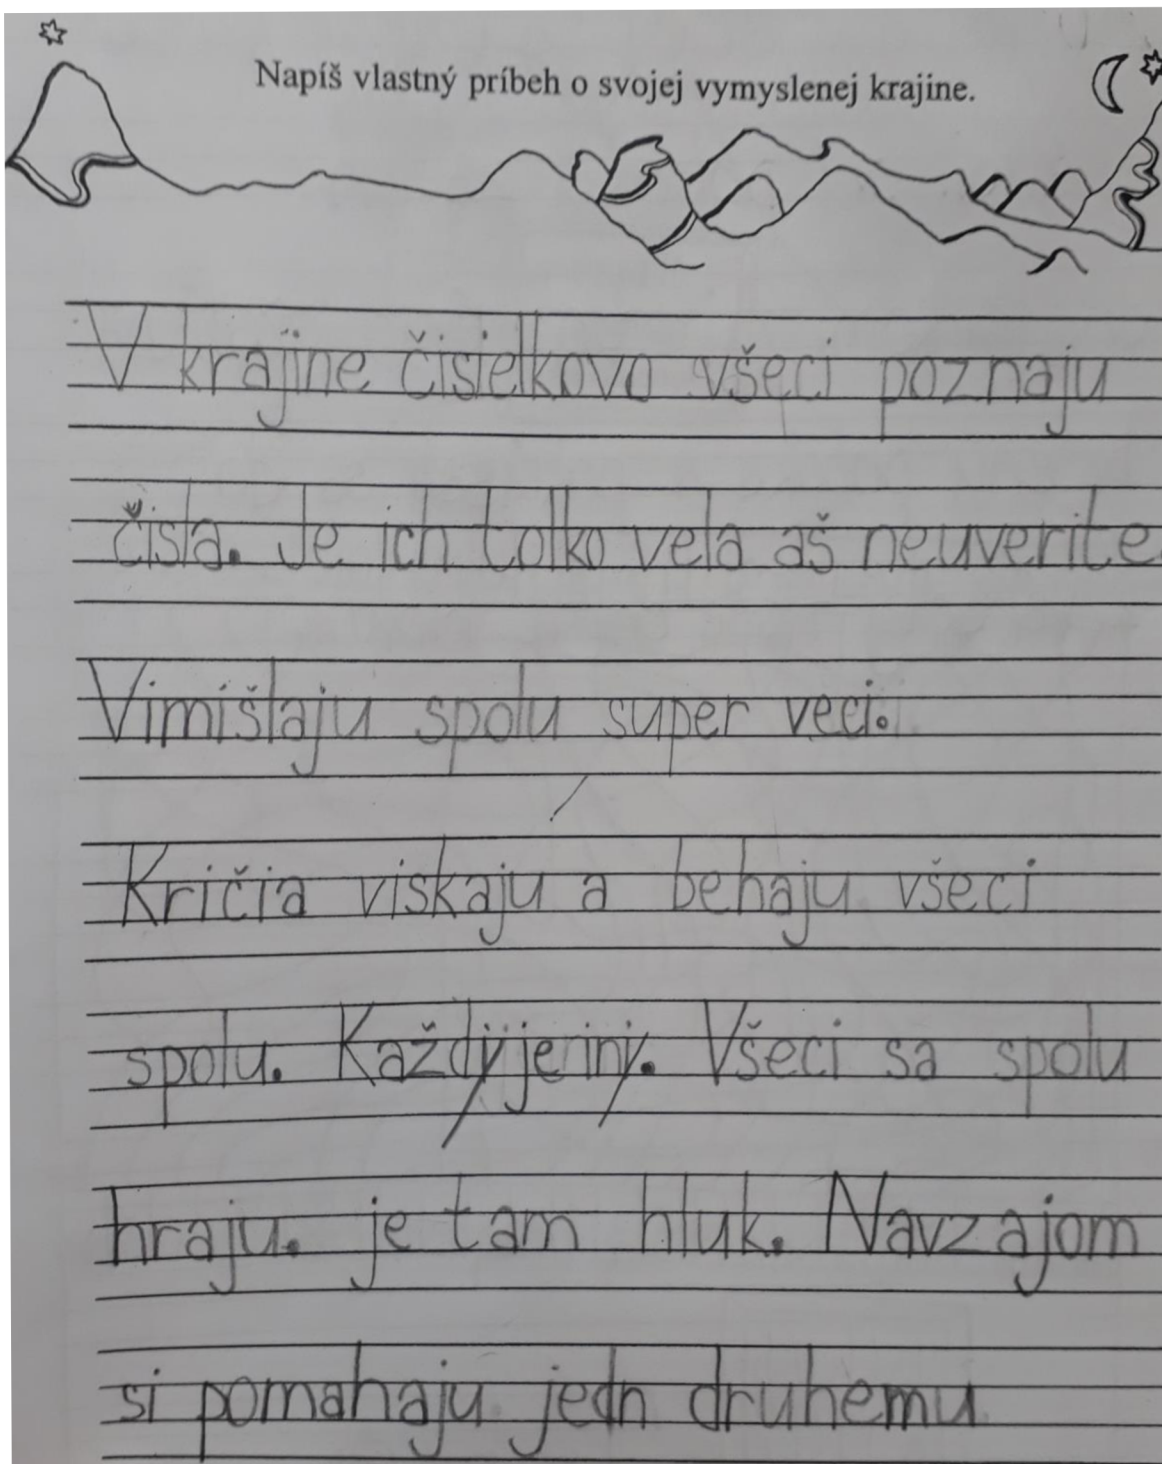 Napíš vlastný príbeh o svojej vymyslenej krajine.
V krajine čisielkovo všeci poznaju
čisla. Je ich tolko vela aš neuverite
Vimišlaju spolu super veci.
Kričia viskaju a behaju všeci
spolu. Každý jeiný. Všeci sa spolu
hraju. je tam hluk. Navzajom
si pomahaju jedn druhemu